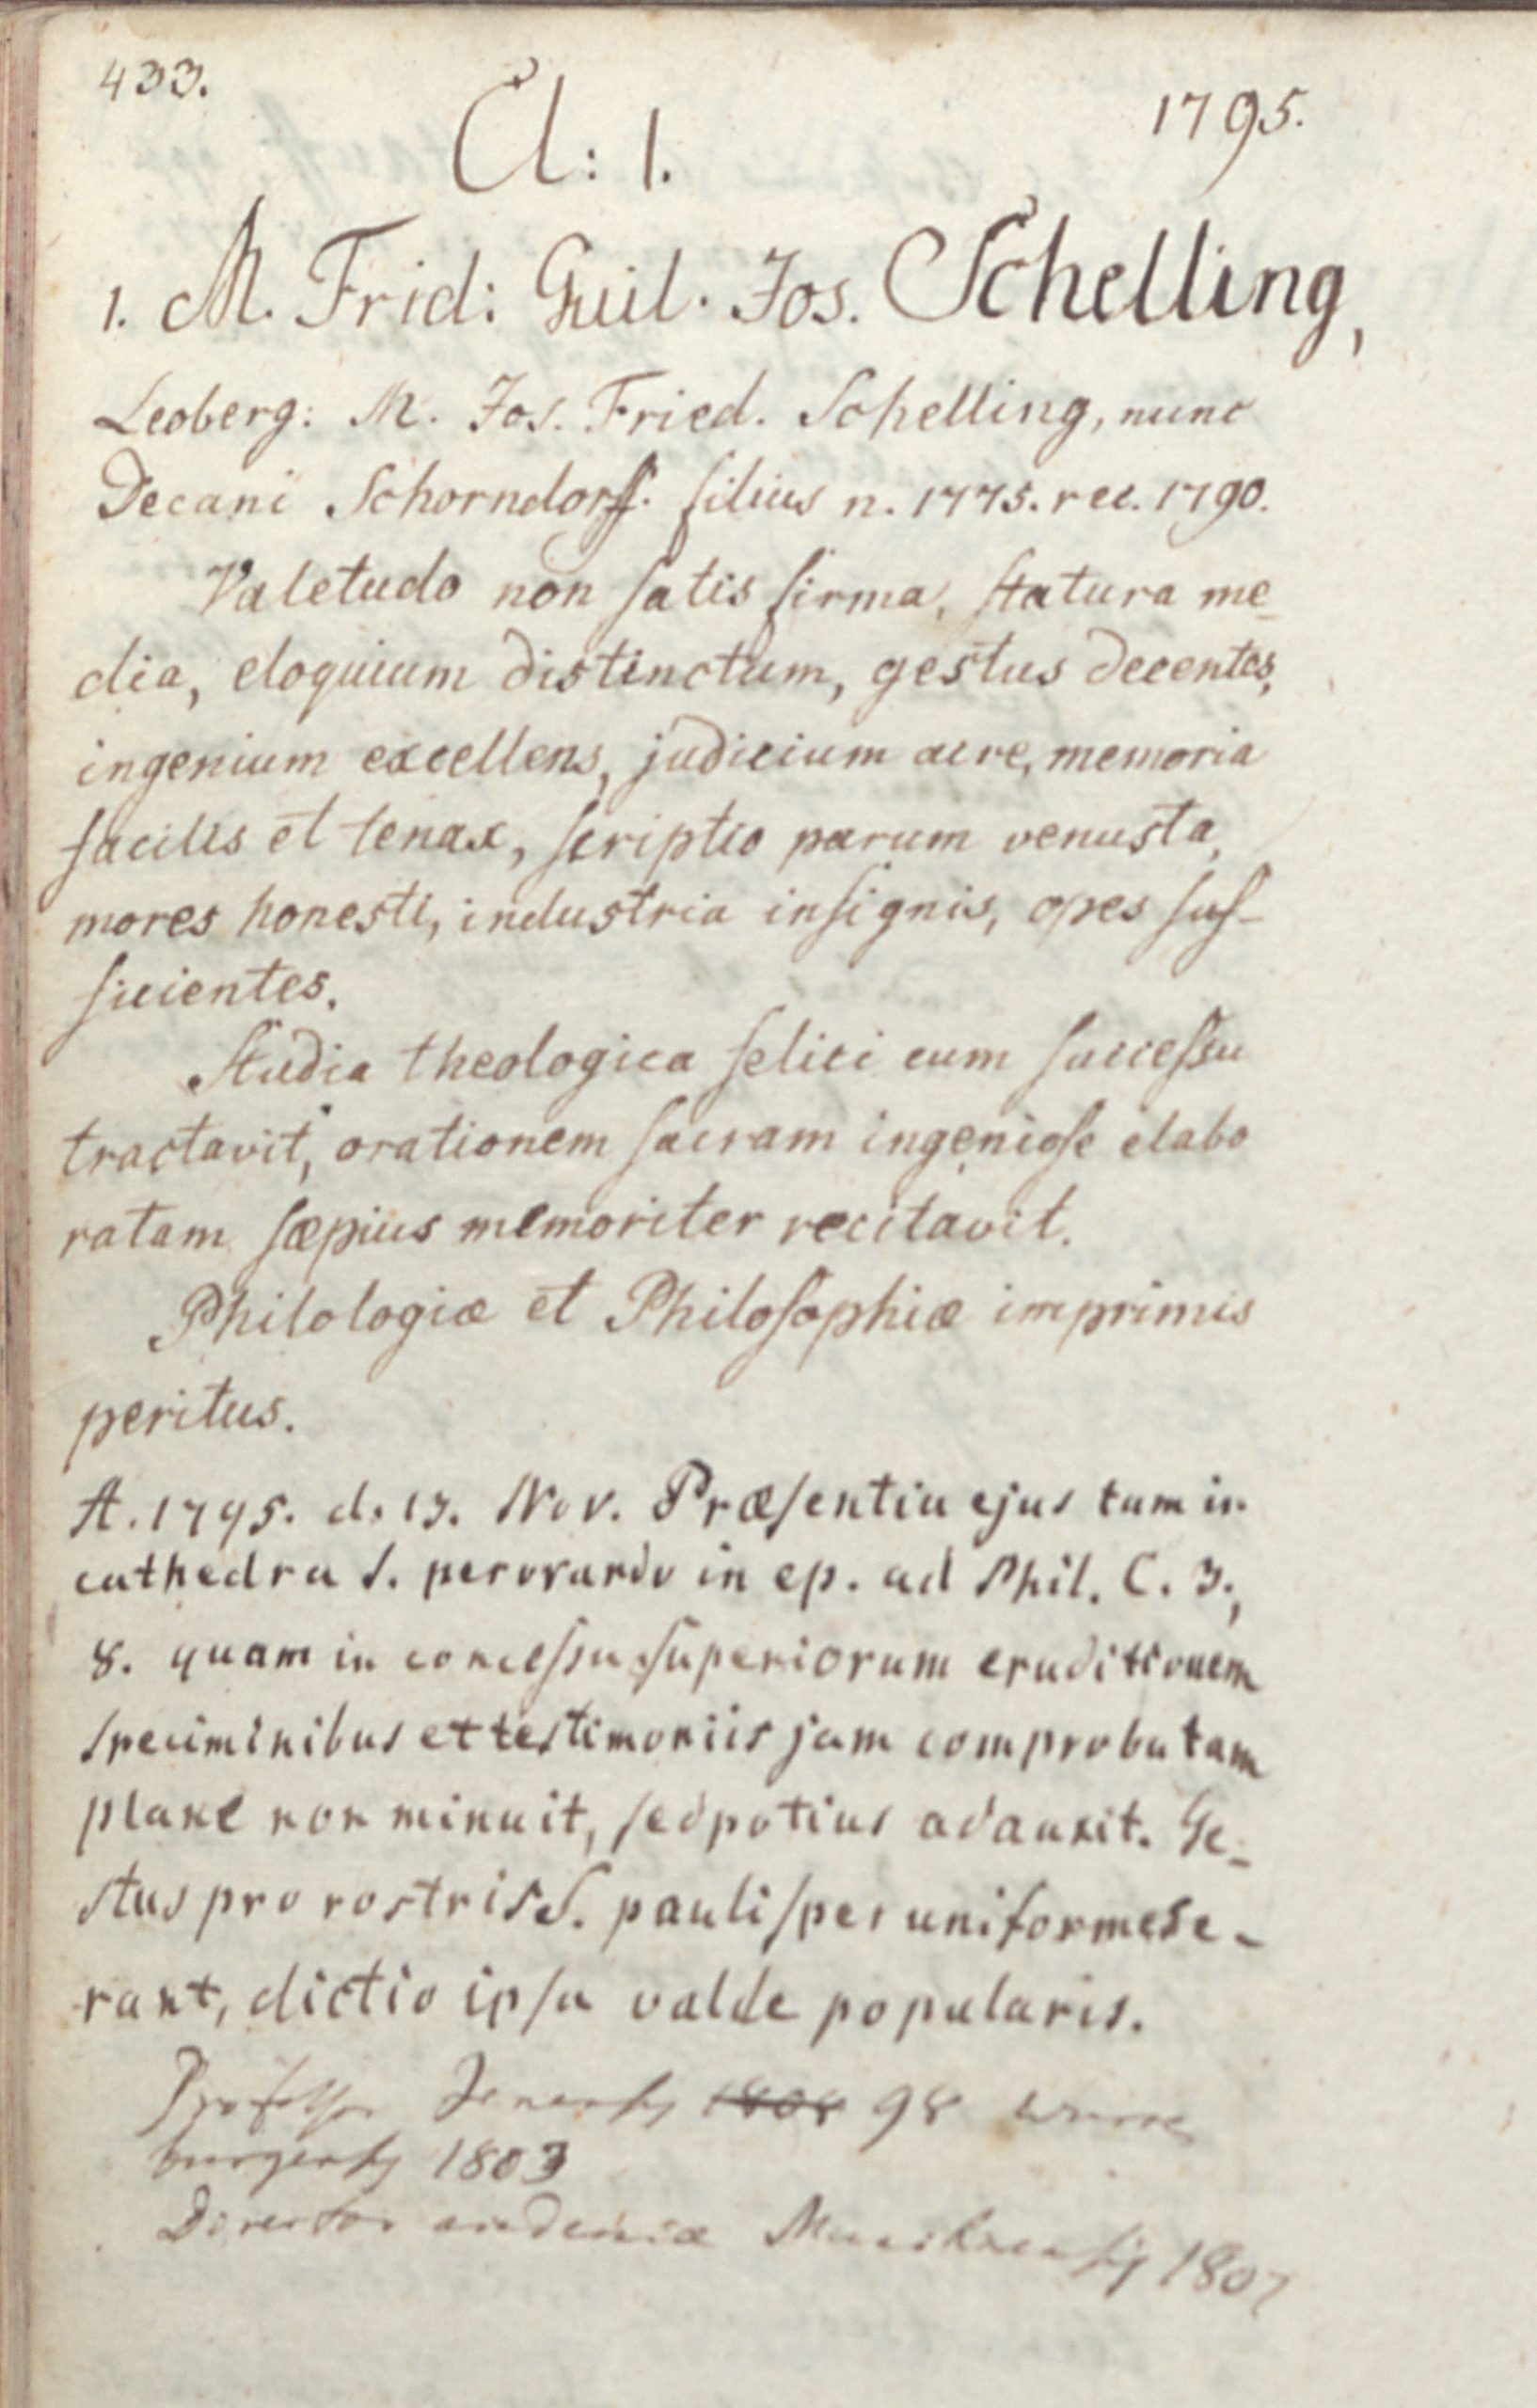 433.
Cl: 1.
1795.
1. M. Frid: Guil. Jos. Schelling,
Leoberg: M. Jos. Fried. Schelling, nunc
Decani Schorndorff. filius n. 1775. rec. 1790.
Valetudo non satis firma, statura me_
dia, eloquium distinctum, gestus decentes,
ingenium excellens, judicium acre, memoria
facilis et tenax, scriptio parum venusta,
mores honesti, industria insignis, opes suf-
ficientes.
Studia theologica felici cum successu
tractavit, orationem sacram ingeniose elabo
ratam sæpius memoriter recitavit.
Philologiæ et Philosophiæ imprimis
peritus.
A. 1795. d. 13. Nov. Præsentia ejus tum in
cathedra S. perorando in ep. ad Phil. C. 3.,
8. quam in concessu superiorum eruditionem
speciminibus et testimoniis jam comprobatam
plane non minuit, sed potius adauxit. Ge_
stus pro rostris S. paulisper uniformes e-
rant, dictio ipsa valde popularis.
Professor Jenensis 1808 98 Wurce
burgensis 1803
Director academiæ Munchnensis 1807